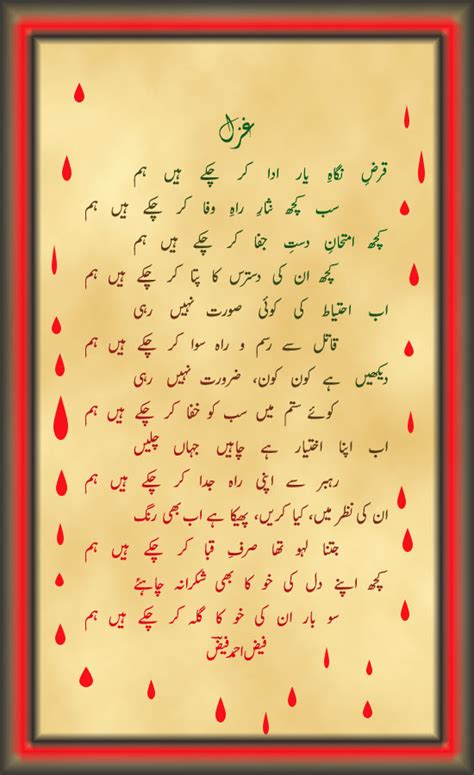 غزل
قرضِ نگاہِ یار ادا کر چکے ہیں ہم
سب کچھ نثارِ راہِ وفا کر چکے ہیں ہم
کچھ امتحانِ دستِ جفا کر چکے ہیں ہم
کچھ ان کی دسترس کا پتا کر چکے ہیں ہم
اب احتیاط کی کوئی صورت نہیں رہی
قاتل سے رسم و راہ سوا کر چکے ہیں ہم
دیکھیں ہے کون کون، ضرورت نہیں رہی
کوئے ستم میں سب کو خفا کر چکے ہیں ہم
اب اپنا اختیار ہے چاہیں جہاں چلیں
رہبر سے اپنی راہ جدا کر چکے ہیں ہم
ان کی نظر میں، کیا کریں، پھیکا ہے اب بھی رنگ
جتنا لہو تھا صرفِ قبا کر چکے ہیں ہم
کچھ اپنے دل کی خو کا بھی شکرانہ چاہئے
سو بار ان کی خو کا گلہ کر چکے ہیں ہم
فیض احمد فیضؔ